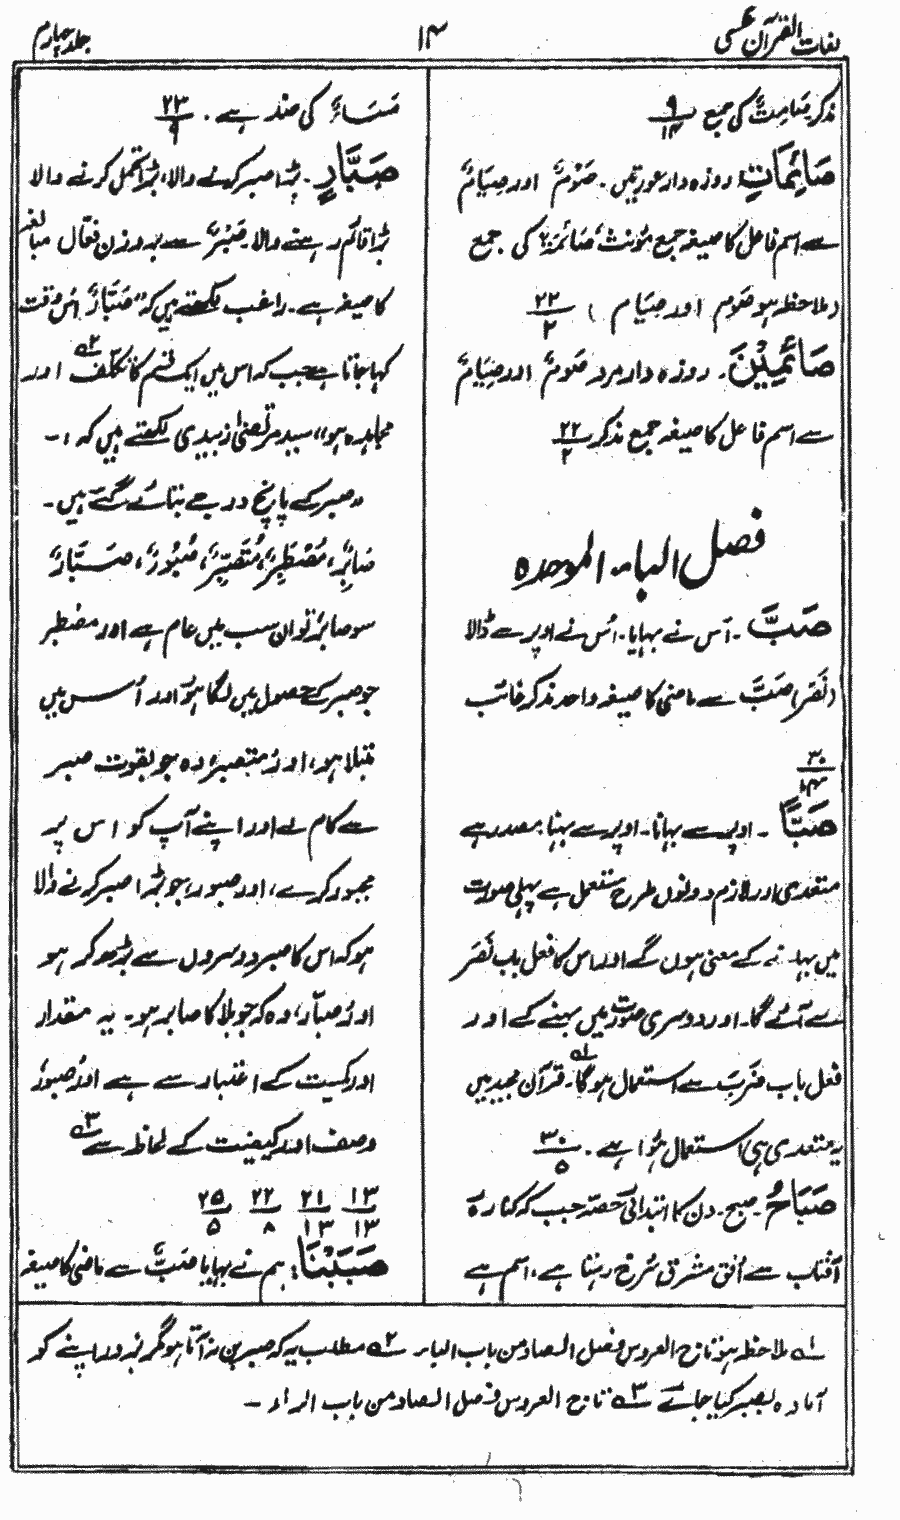 لغات القرآن عکسی
۱۴
جلد چہارم
مذکر صَامِتٌ کی جمع ۹/۱۴
صَائِمَاتٍ، روزہ دار عورتیں۔ صَوْمٌ اور صِیَامٌ
سے اسم فاعل کا صیغہ جمع مؤنث، صَائِمَۃٌ کی جمع
(ملاحظہ ہو صَوم اور صِیَام) ۲۲/۲
صَائِمِیْنَ۔ روزہ دار مرد صَوْمٌ اور صِیَامٌ
سے اسم فاعل کا صیغہ جمع مذکر ۲۲/۲
فصل الباء الموحدہ
صَبَّ۔ اُس نے بہایا۔ اُس نے اوپر سے ڈالا
(نَصَرَ) صَبٌّ سے ماضی کا صیغہ واحد مذکر غائب
۳۰/۱۴
صَبًّا۔ اوپر سے بہانا۔ اوپر سے بہنا، مصدر ہے
متعدی اور لازم دونوں طرح مستعمل ہے پہلی صورت
میں بہانے کے معنی ہوں گے اور اس کا فعل باب نَصَرَ
سے آئے گا۔ اور دوسری صورت میں بہنے کے اور
فعل باب ضَرَبَ سے استعمال ہوگا۔ ؎۱ قرآن مجید میں
یہ متعدی ہی استعمال ہُوا ہے۔ ۳۰/۵
صَبَاحُ۔ صبح۔ دن کا ابتدائی حصّہ جب کہ کنارہ
آفتاب سے اُفق مشرق سُرخ رہتا ہے، اسم ہے
مَسَاءٌ کی ضد ہے۔ ۲۳/۹
صَبَّارٍ۔ بڑا صبر کرنے والا، بڑا تحمل کرنے والا
بڑا قائم رہنے والا۔ صَبْرٌ سے بروزن فعّال مبالغہ
کا صیغہ ہے۔ راغب لکھتے ہیں کہ "صَبَّارٌ اُس وقت
کہا جاتا ہے جب کہ اس میں ایک قسم کا تکلف ؎۲ اور
مجاہدہ ہو"، سید مرتضیٰ زبیدی لکھتے ہیں کہ :۔
"صبر کے پانچ درجے بتائے گئے ہیں۔
صَابِرٌ، مُصْطَبِرٌ، مُتَصَبِّرٌ، صَبُورٌ، صَبَّارٌ
سو صابر تو ان سب میں عام ہے اور مصطبر
جو صبر کے حصول میں لگا ہوا اور اُس میں
مبتلا ہو، اور متصبر وہ جو بقوت صبر
سے کام لے اور اپنے آپ کو اس پر
مجبور کرے، اور صبور، جو بڑا صبر کرنے والا
ہو کہ اس کا صبر دوسروں سے بڑھ کر ہو
اور صبّار، وہ کہ جو بلا کا صابر ہو۔ یہ مقدار
اور کمیت کے اعتبار سے ہے اور صبور
وصف اور کیفیت کے لحاظ سے ؎۳
۱۳/۱۳ ۲۱/۱۳ ۲۲/۸ ۲۵/۵
صَبَبْنَا: ہم نے بہایا صَبٌّ سے ماضی کا صیغہ
؎۱ ملاحظہ ہو تاج العروس فصل الصاد من باب الباء ؎۲ مطلب یہ کہ صبر بن نہ آتا ہو مگر بزور اپنے کو
آمادہ بصبر کیا جائے ؎۳ تاج العروس فصل الصاد من باب الراء ۔